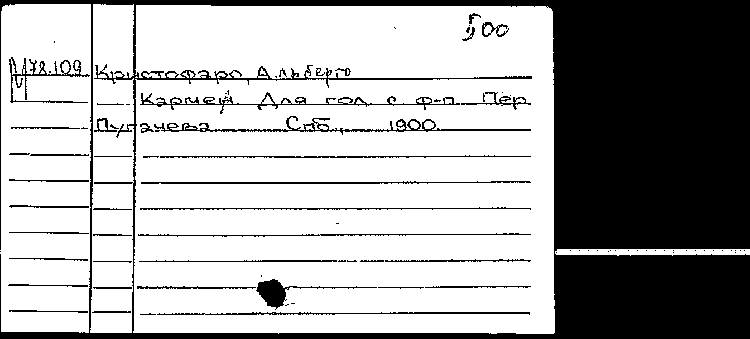 500
М78.109 Кристофаро, Альберто
Кармен. Для гол. с ф-п. Пер
Пугачева Спб., 1900.